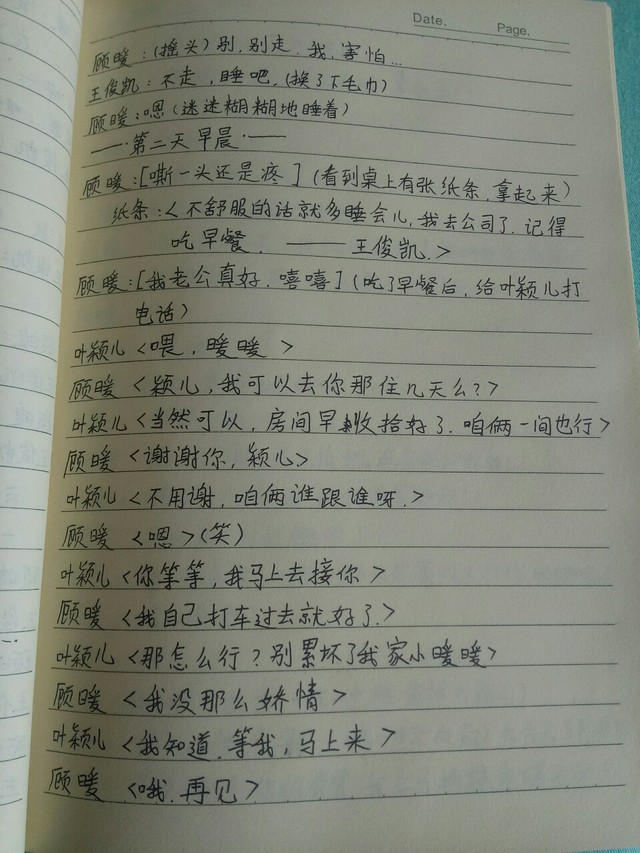 Date.
Page.
顾暖：(摇头) 别，别走，我，害怕…
王俊凯：不走，睡吧，(换了下毛巾)
顾暖：嗯 (迷迷糊糊地睡着)
——·第二天早晨·——
顾暖：[嘶一头还是疼] (看到桌上有张纸条，拿起来)
纸条：<不舒服的话就多睡会儿，我去公司了．记得
吃早餐． ——— 王俊凯．>
顾暖：[我老公真好．嘻嘻] (吃了早餐后，给叶颖儿打
电话)
叶颖儿 <喂，暖暖 >
顾暖 <颖儿，我可以去你那住几天么？>
叶颖儿 <当然可以，房间早收拾好了．咱俩一间也行>
顾暖 <谢谢你，颖儿>
叶颖儿 <不用谢，咱俩谁跟谁呀．>
顾暖 <嗯> (笑)
叶颖儿 <你等等，我马上去接你 >
顾暖 <我自己打车过去就好了．>
叶颖儿 <那怎么行？别累坏了我家小暖暖>
顾暖 <我没那么娇情 >
叶颖儿 <我知道．等我，马上来 >
顾暖 <哦．再见>